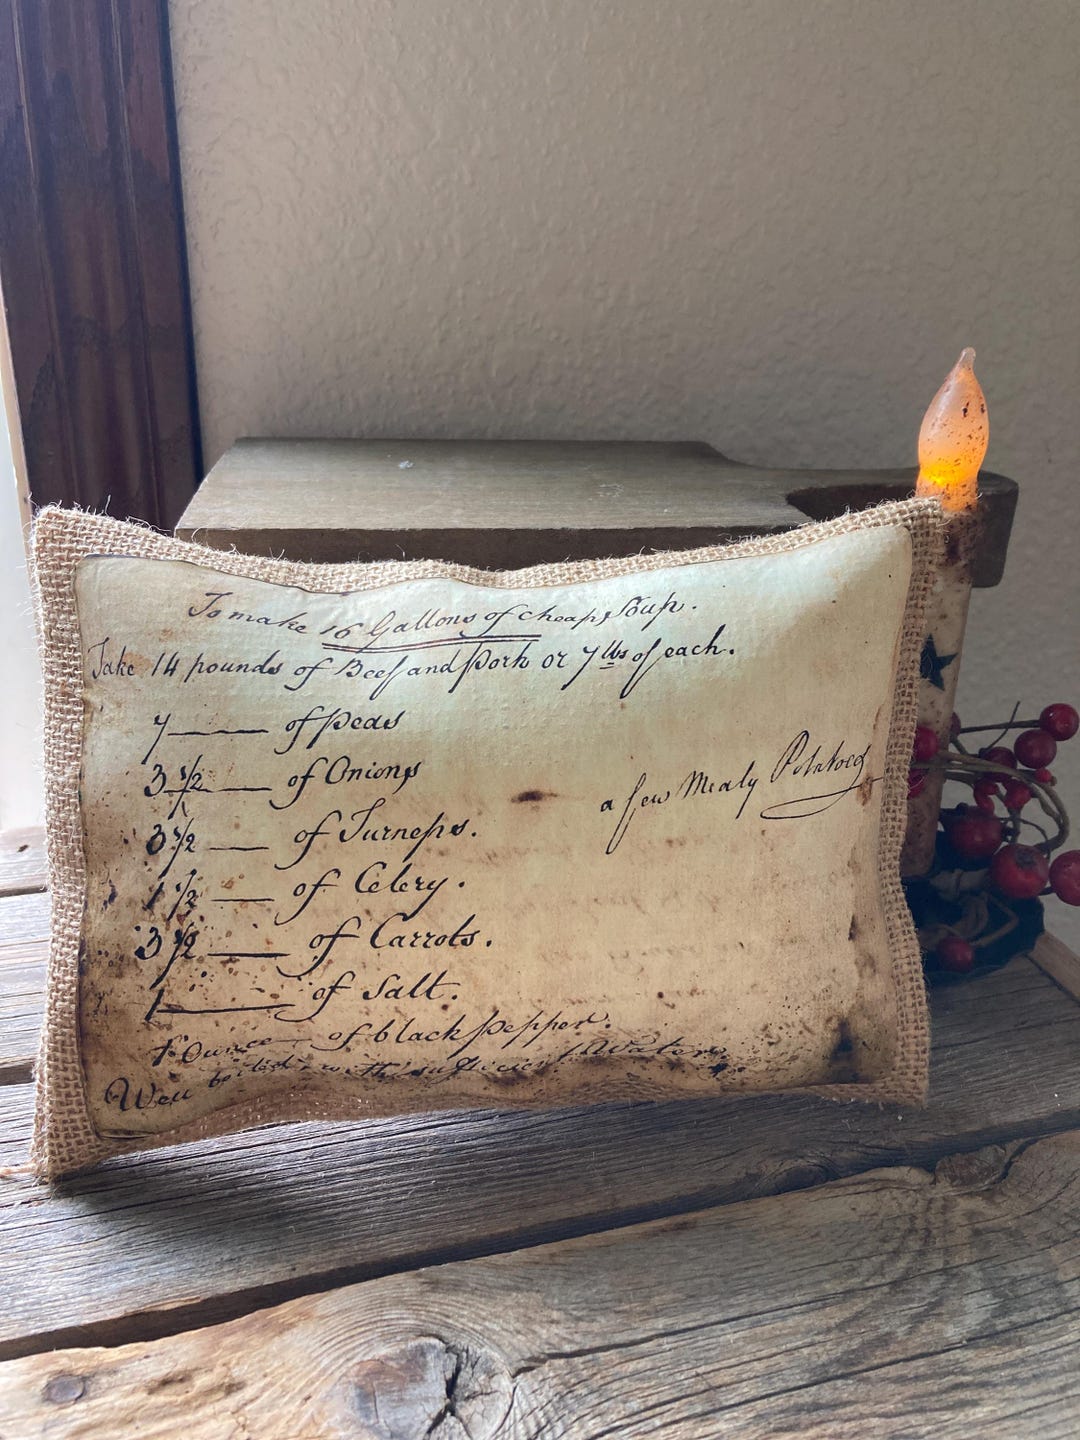 To make 16 Gallons of cheap Soup.
Take 14 pounds of Beef and Pork or 7 lbs of each.
7 —— of Peas
3 1/2 —— of Onions
a few Mealy Potatoes
3 1/2 —— of Turneps.
1 1/2 —— of Celery.
3 1/2 —— of Carrots.
1 —— of Salt.
1 Ounce — of black Pepper.
Well boiled with sufficient Water